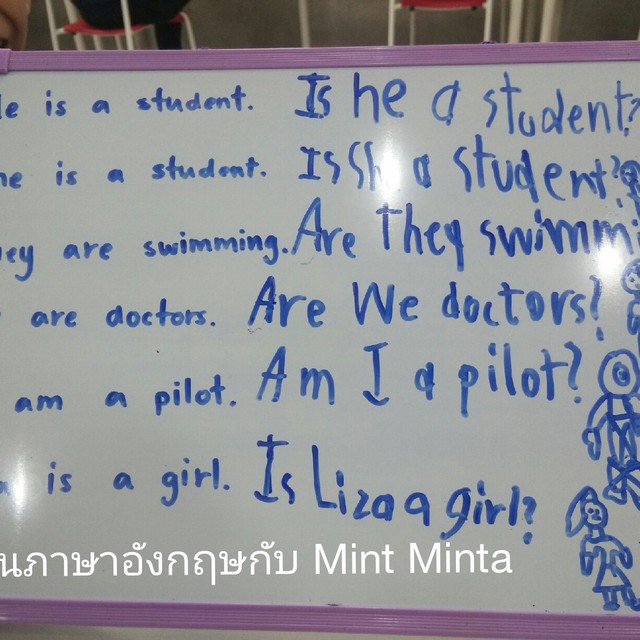 is a student. Is he a student?
is a student. Is a student?
are swimming. Are they
are doctors. Are We doctors?
am a pilot. Am I a pilot?
is a girl. Is Liza a girl?
ภาษาอังกฤษกับ Mint Minta